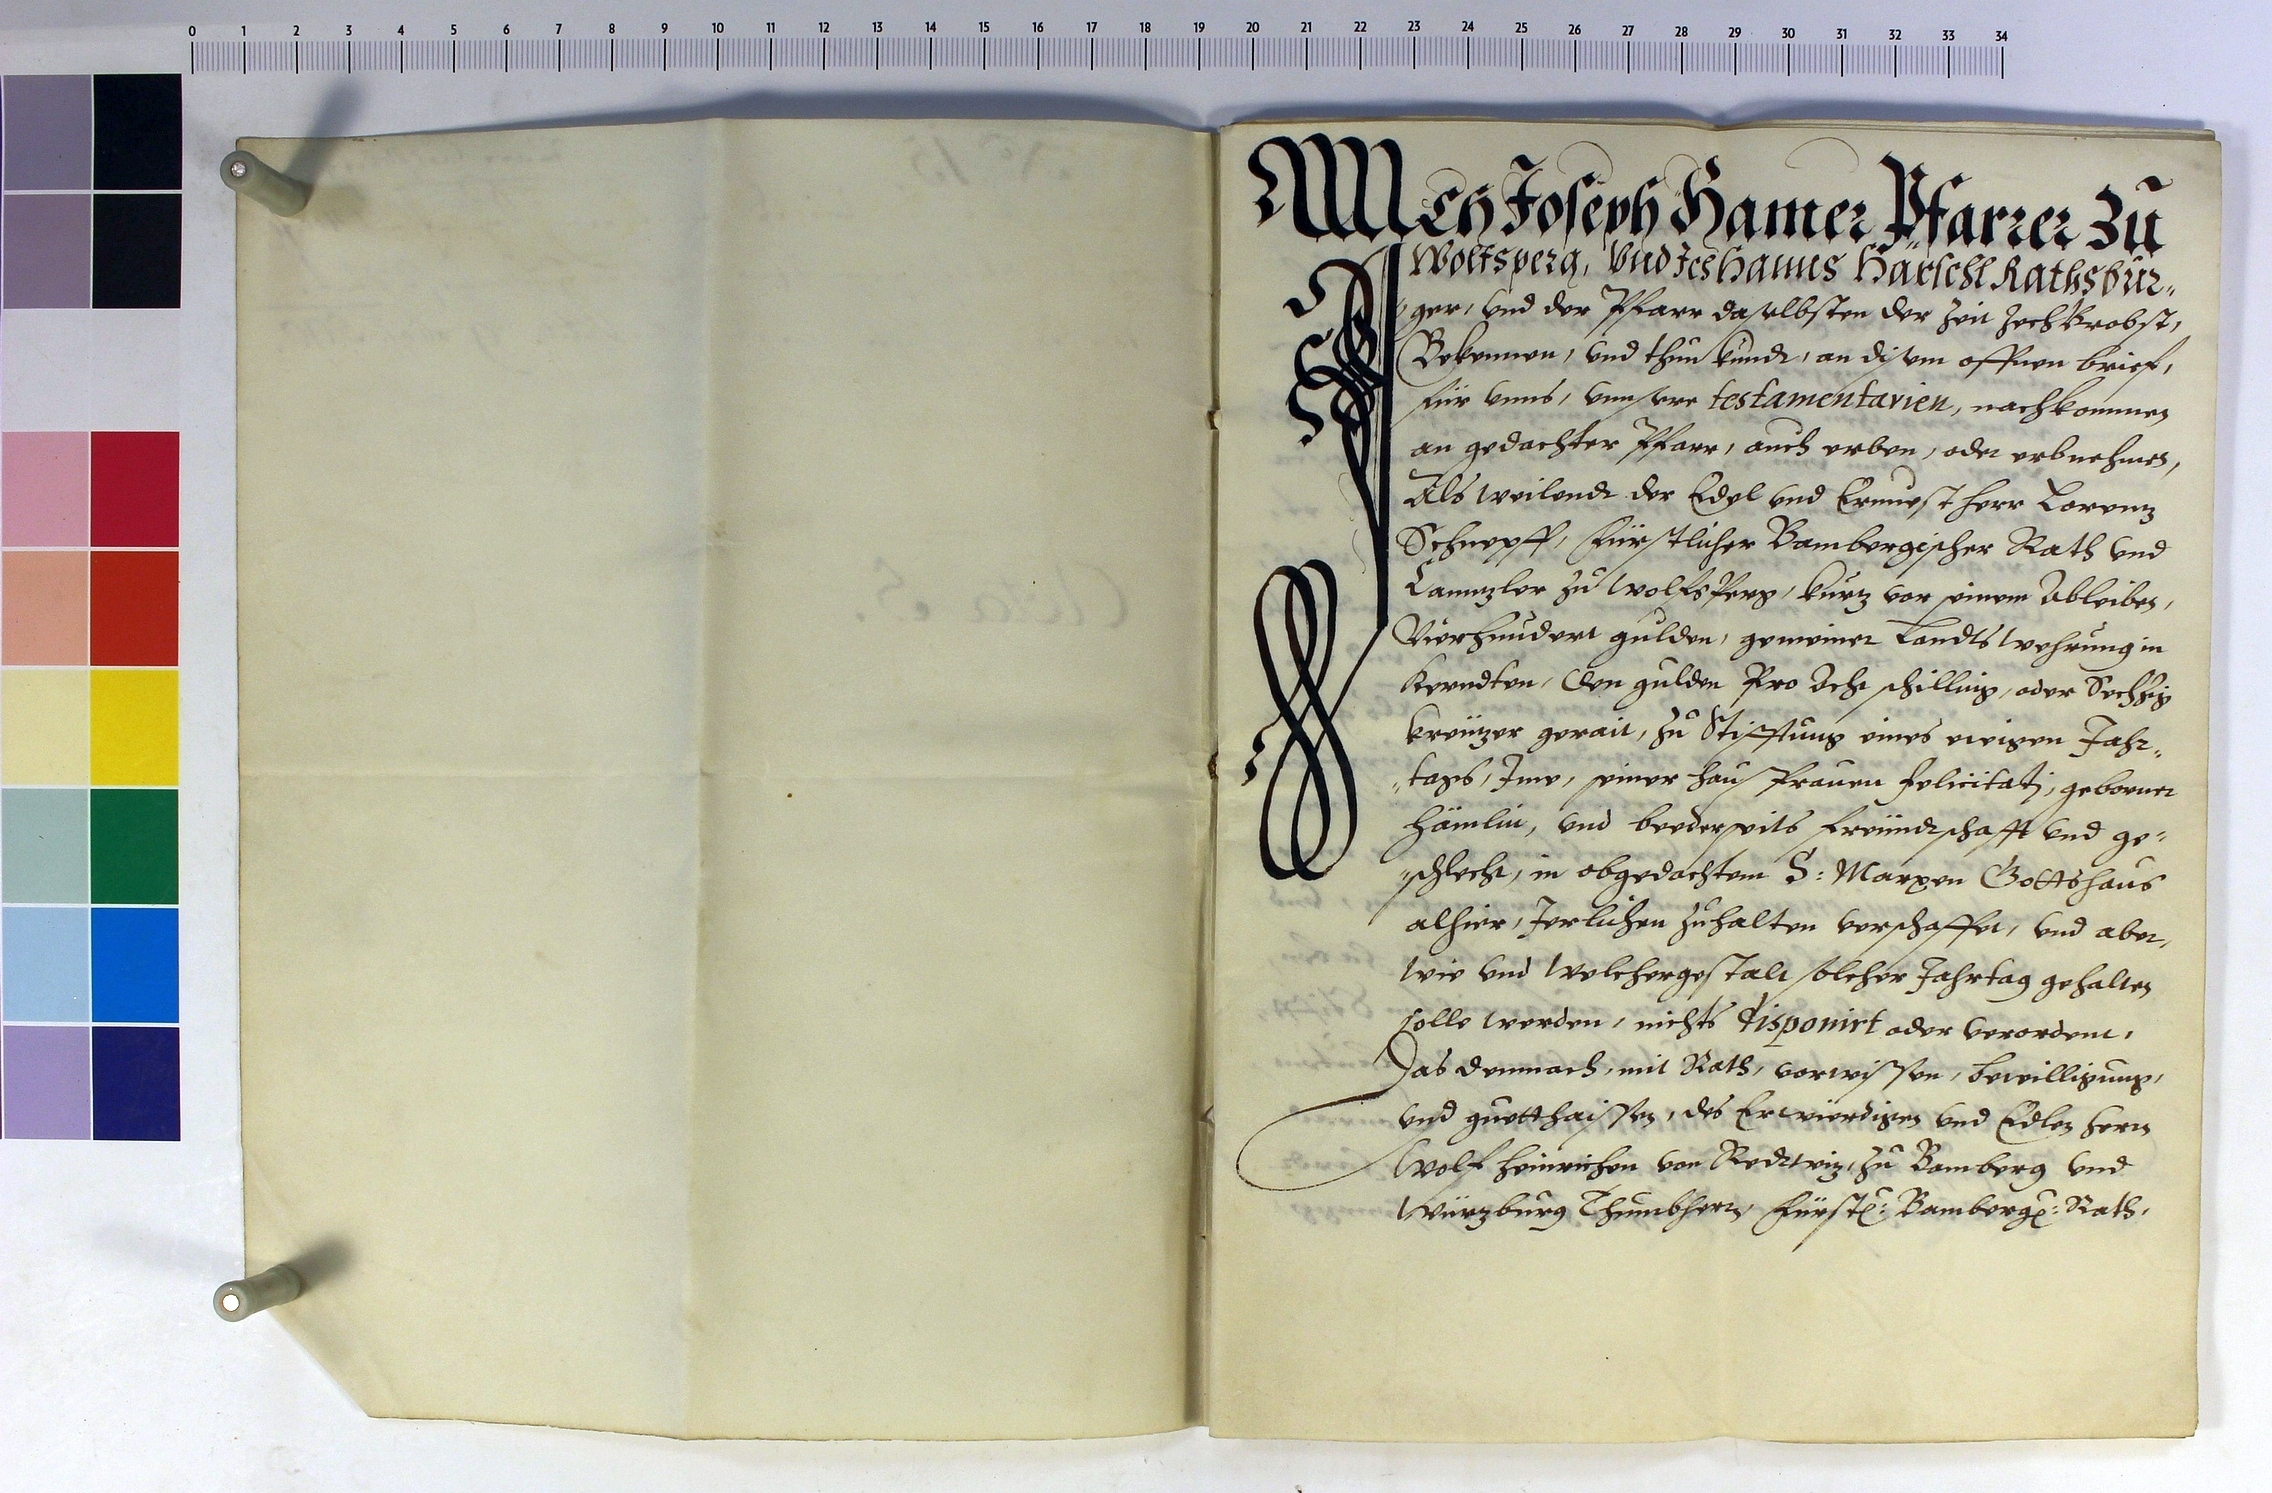 0 1 2 3 4 5 6 7 8 9 10 11 12 13 14 15 16 17 18 19 20 21 22 23 24 25 26 27 28 29 30 31 32 33 34
Ich Joseph Hamer Pfarrer zu
Wolfsperg, Vnd Ich Hanns Härschl Rathsbur„
„ger, vnd der Pfarr daselbsten der Zeit Zechbrobst,
Bekennen, vnd thun kundt, an disem offnen brief,
für vnns, vnnsere testamentarien, nachkommen
an gedachter Pfarr, auch erben, oder erbnehmen,
Als weilendt der Edel vnd Ernuest herr Lorenz
Schnepff, Fürstlicher Bambergischer Rath vnd
Canntzler zu Wolfsperg, kurtz vor seinem Ableiben,
Vierhundert gulden, gemeiner Landtswehrung in
Kerndten, den gulden Pro Acht schilling, oder Sechzig
kreützer gerait, zu Stifftung eines ewigen Jahr„
„tags, Ime, seiner hausfrauen felicitatj, geborner
Hämlin, vnd beederseits freündtschafft vnd ge„
„schlecht, in obgedachtem S: Marxen Gottshaus
alhier, Jerlichen zuhalten verschaffet, vnd aber,
wie vnd welchergestalt solcher Jahrtag gehalten
solle werden, nichts disponirt oder verordent,
Das demnach, mit Rath, vorwissen, bewilligung,
vnd guetthaissen, des Erwürdigen vnd Edlen herrn
Wolf Heinrichen von Redtwiz, zu Bamberg vnd
Würzburg Thumbherrn, Fürstl: Bambergl: Rath,